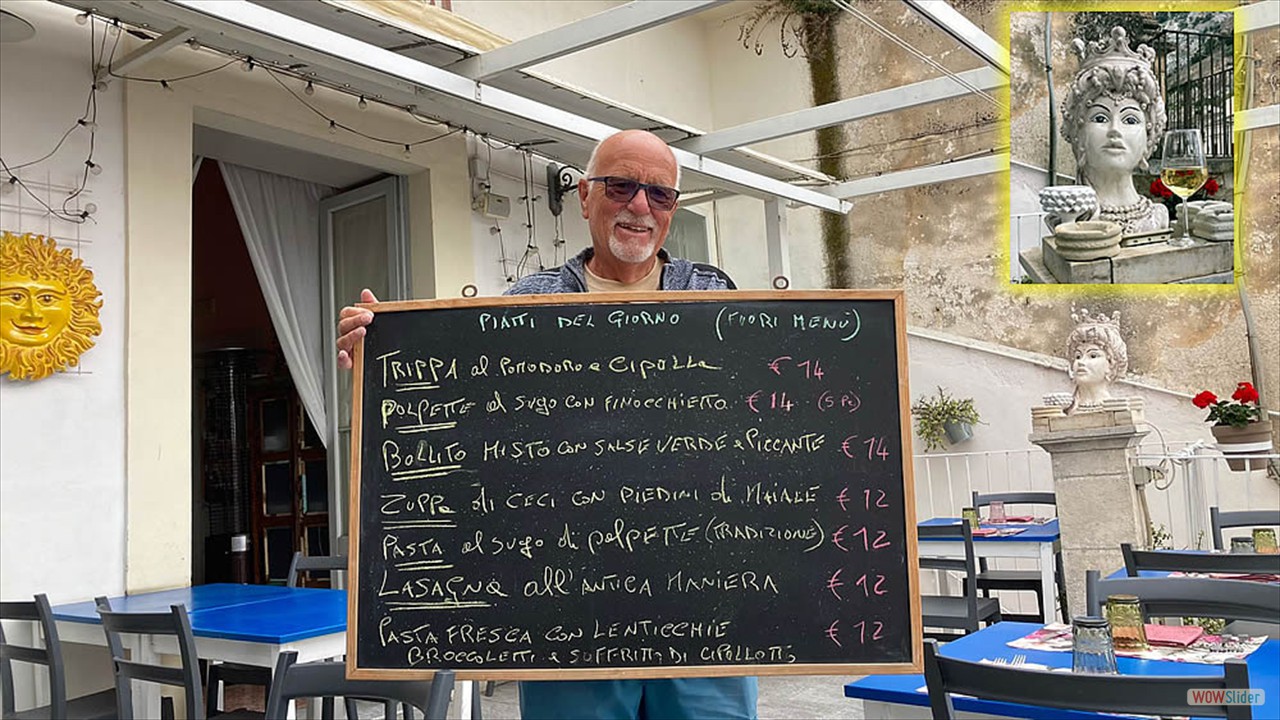 PIATTI DEL GIORNO (FUORI MENÙ)
TRIPPA al POMODORO e CIPOLLA € 14
POLPETTE al SUGO CON FINOCCHIETTO € 14 (5 Pz)
BOLLITO MISTO CON SALSE VERDE e PICCANTE € 14
ZUPPA di CECI CON PIEDINI di MAIALE € 12
PASTA al SUGO di POLPETTE (TRADIZIONE) € 12
LASAGNA all'ANTICA MANIERA € 12
PASTA FRESCA CON LENTICCHIE € 12
BROCCOLETTI e SUFFRITTO DI CIPOLLOTTO
WOWSlider